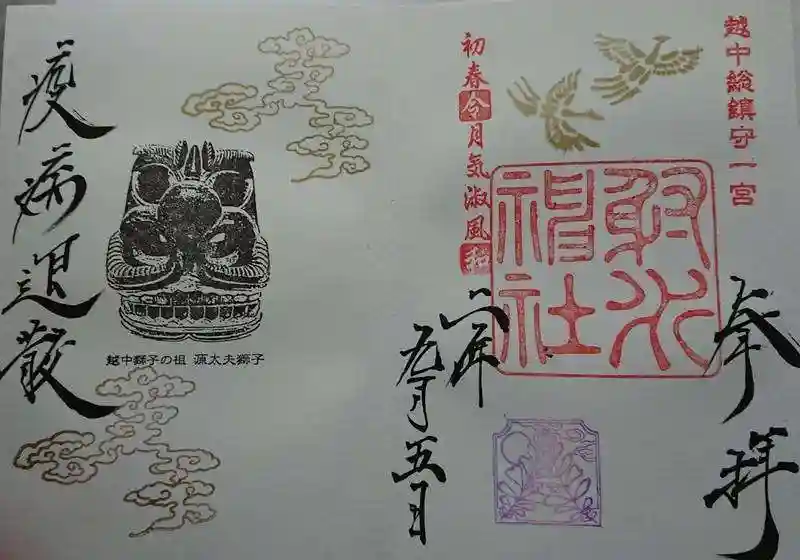 越中総鎮守一宮
奉拝
射水
神社
初春令月気淑風和
年
九月五日
疫病退散
越中獅子の祖 源太夫獅子